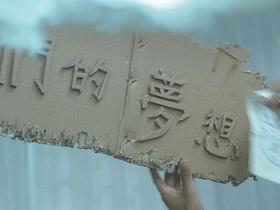 們的夢想